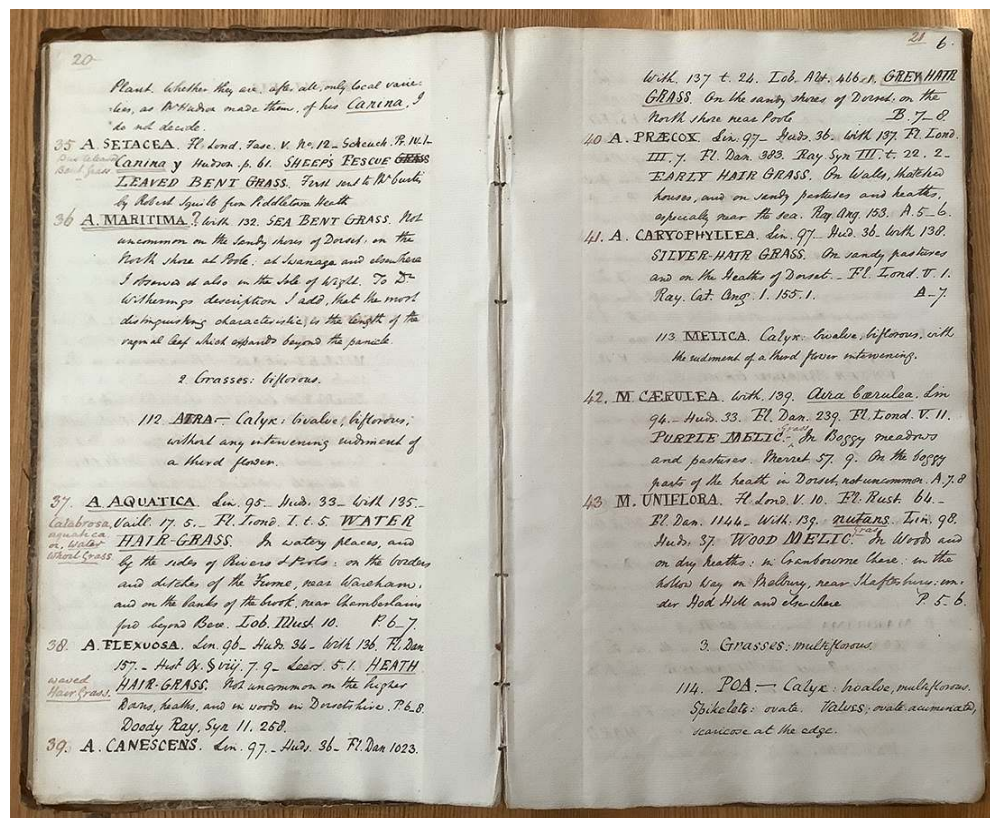 20
Plant. Whether they are after all, only local varie-
ties, as Mr Hudson made them, of his Canina, I
do not decide.
35 A. SETACEA. Fl. Lond. Fasc. V. No. 12 - Scheuch. Pr. IV. 1-
Bent Grass
Canina γ Hudson p. 61. SHEEP'S FESCUE GRASS
LEAVED BENT GRASS. First sent to Mr Curtis
by Robert Squibb from Piddletown Heath
36 A. MARITIMA? With 132. SEA BENT GRASS. Not
uncommon on the sandy shores of Dorset: on the
North shore at Poole: at Swanage and elsewhere
I observed it also in the Isle of Wight. To Dr
Witherings description I add, that the most
distinguishing characteristic is the length of the
vaginal leaf which expands beyond the panicle.
2. Grasses: biflorous.
112 AIRA — Calyx: bivalve, biflorous;
without any intervening rudiment of
a third flower.
37. A AQUATICA. Lin. 95 - Huds. 33 - With 135 -
Catabrosa
aquatica
or, Water
Whorl Grass.
Vaill. 17. 5. - Fl. Lond. I. t. 5 WATER
HAIR-GRASS. In watery places, and
by the sides of Rivers & Pools: on the borders
and ditches of the Frome, near Wareham:
and on the banks of the brook, near Chamberlains
ford beyond Bere. Lob. Illust. 10. P. 6-7.
38. A. FLEXUOSA. Lin. 96 - Huds 34 - With 136. Fl. Dan
157. - Hist Ox. S viij. 7. 9 - Leers. 5. 1. HEATH
waved
Hair Grass.
HAIR-GRASS. Not uncommon on the higher
Downs, heaths, and in woods in Dorsetshire. P. 6-8.
Doody Ray. Syn 11. 258.
39. A. CANESCENS. Lin. 97 - Huds. 36 - Fl. Dan 1023.
21 6.
With 137 t. 24. Lob. Adv. 466. 1. GREY HAIR
GRASS. On the sandy shores of Dorset: on the
North shore near Poole B. 7-8.
40 A. PRÆCOX. Lin. 97 - Huds. 36. With 137. Fl. Lond.
III. 7. Fl. Dan. 383. Ray. Syn III. t. 22. 2 -
EARLY HAIR GRASS. On Walls, thatched
houses, and on sandy pastures and heaths,
especially near the sea. Ray. Ang. 153. A. 5-6.
41. A. CARYOPHYLLEA. Lin. 97 - Hud. 36 - With 138.
SILVER-HAIR GRASS. On sandy pastures
and on the Heaths of Dorset - Fl. Lond. V. 1.
Ray. Cat. Ang. 1. 155. 1. A-7.
113 MELICA. Calyx: bivalve, biflorous, with
the rudiment of a third flower intervening.
42. M. CÆRULEA. With. 139. Aira Cærulea. Lin
94 - Huds. 33. Fl. Dan. 239. Fl. Lond. V. 11.
PURPLE MELIC-Grass. In Boggy meadows
and pastures. Merret 57. 9. On the boggy
parts of the heath in Dorset, not uncommon. A. 7. 8
43 M. UNIFLORA. Fl. Lond. V. 10. Fl. Rust. 64. -
Fl. Dan. 1144 - With. 139. nutans. Lin. 98.
Huds. 37. WOOD MELIC Grass. In Woods and
on dry heaths: in Cranbourne Chace: in the
hollow way on Melbury, near Shaftesbury: un-
der Hod Hill and elsewhere P. 5-6.
3. Grasses: multiflorous.
114. POA. — Calyx: bivalve, multiflorous.
Spikelets: ovate. Valves; ovate acuminated,
scariose at the edge.